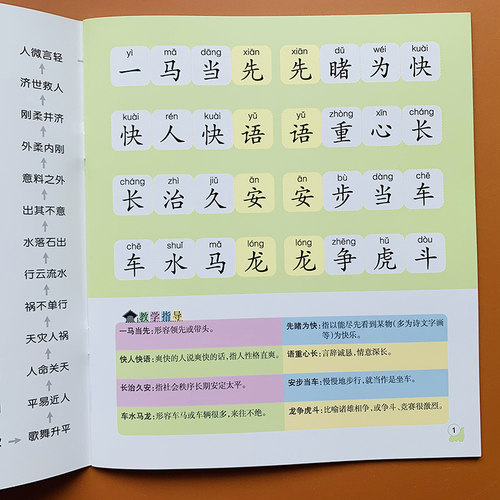 人微言轻
济世救人
刚柔并济
外柔内刚
意料之外
出其不意
水落石出
行云流水
祸不单行
天灾人祸
人命关天
平易近人
歌舞升平
yì mǎ dāng xiān xiān dǔ wéi kuài
一马当先 先睹为快
kuài rén kuài yǔ yǔ zhòng xīn cháng
快人快语 语重心长
cháng zhì jiǔ ān ān bù dàng chē
长治久安 安步当车
chē shuǐ mǎ lóng lóng zhēng hǔ dòu
车水马龙 龙争虎斗
教学指导
一马当先：形容领先或带头。
先睹为快：指以能尽先看到某物（多为诗文字画
等）为快乐。
快人快语：爽快的人说爽快的话，指人性格直爽。
语重心长：言辞诚恳，情意深长。
长治久安：指社会秩序长期安定太平。
安步当车：慢慢地步行，就当作是坐车。
车水马龙：形容车马或车辆很多，来往不绝。
龙争虎斗：比喻诸雄相争，或争斗、竞赛很激烈。
1